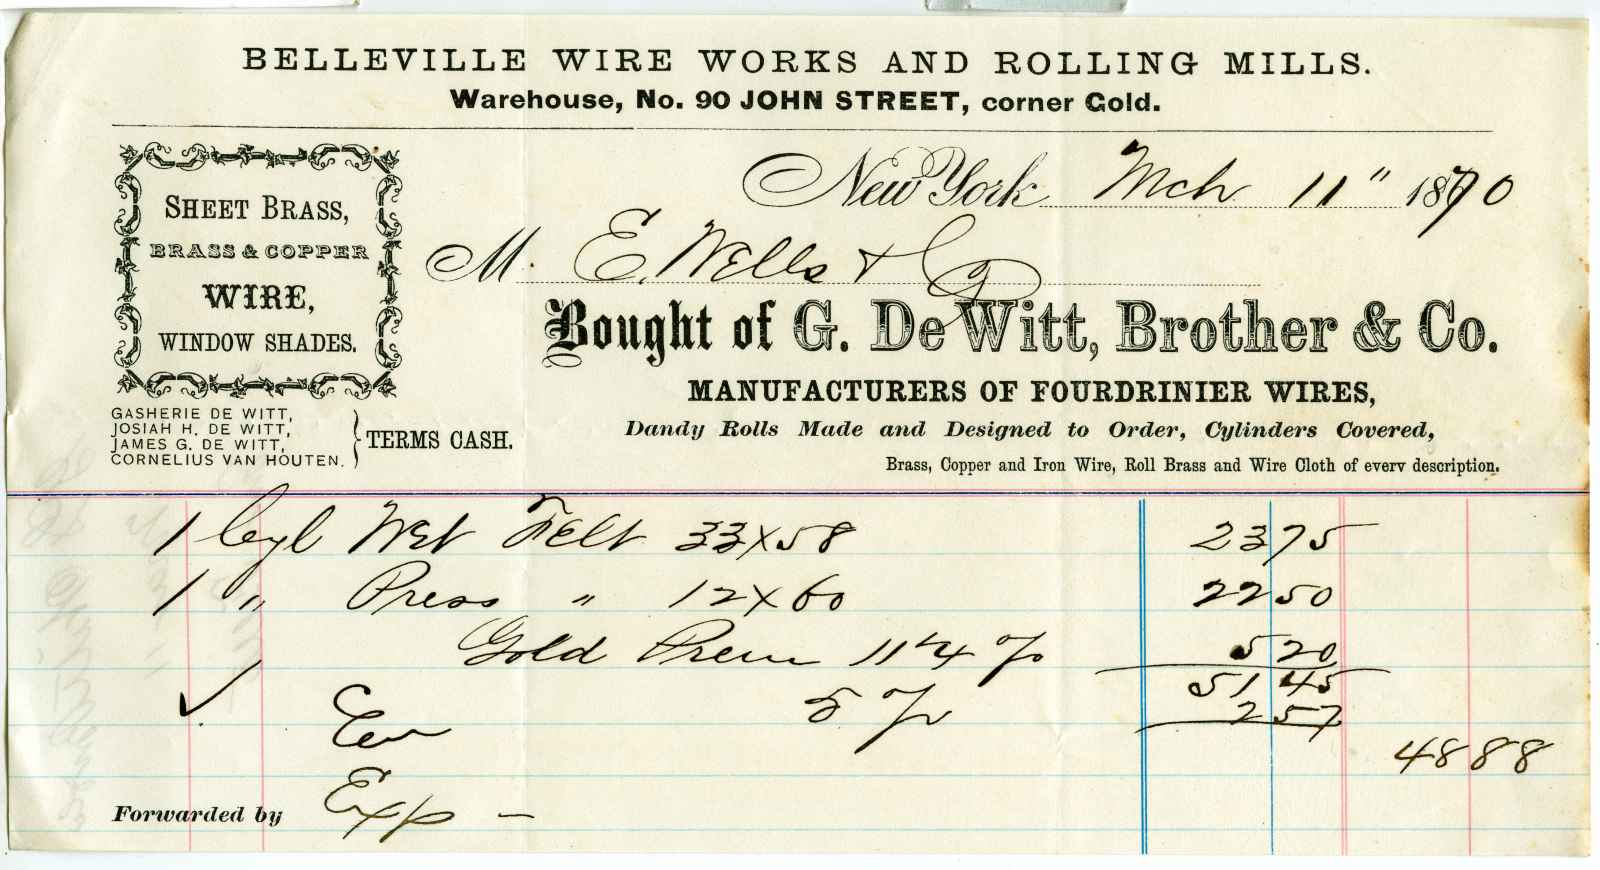 BELLEVILLE WIRE WORKS AND ROLLING MILLS.
Warehouse, No. 90 JOHN STREET, corner Gold.
New York Mch 11" 1870
SHEET BRASS,
BRASS & COPPER
WIRE,
WINDOW SHADES.
M. E. Wells & Co
Bought of G. De Witt, Brother & Co.
MANUFACTURERS OF FOURDRINIER WIRES,
Dandy Rolls Made and Designed to Order, Cylinders Covered,
Brass, Copper and Iron Wire, Roll Brass and Wire Cloth of every description.
GASHERIE DE WITT,
JOSIAH H. DE WITT,
JAMES G. DE WITT,
CORNELIUS VAN HOUTEN.
TERMS CASH.
1 Cyl Wet Felt 33 x 58 23 75
1 " Press " 12 x 60 22 50
Gold Prem 11 1/4 % 5 20
51 45
5 % 2 57
48 88
Forwarded by Exp -